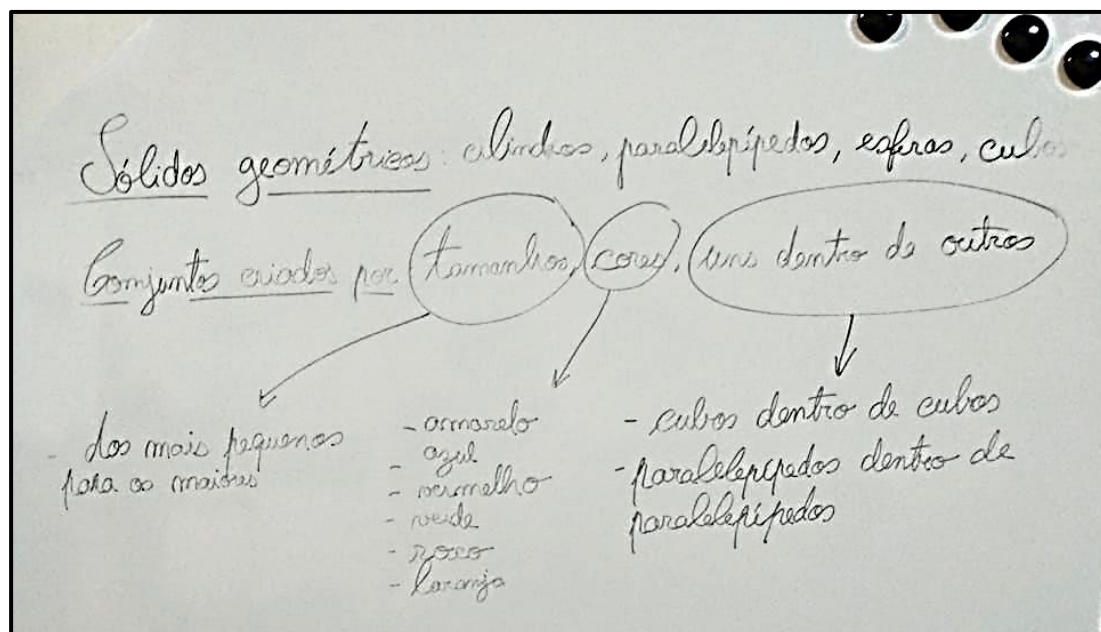 Sólidos geométricos: cilindros, paralelepípedos, esferas, cubos
Conjuntos criados por tamanhos, cores, uns dentro de outros
- dos mais pequenos
para os maiores
- amarelo
- azul
- vermelho
- verde
- roxo
- laranja
- cubos dentro de cubos
- paralelepípedos dentro de
paralelepípedos